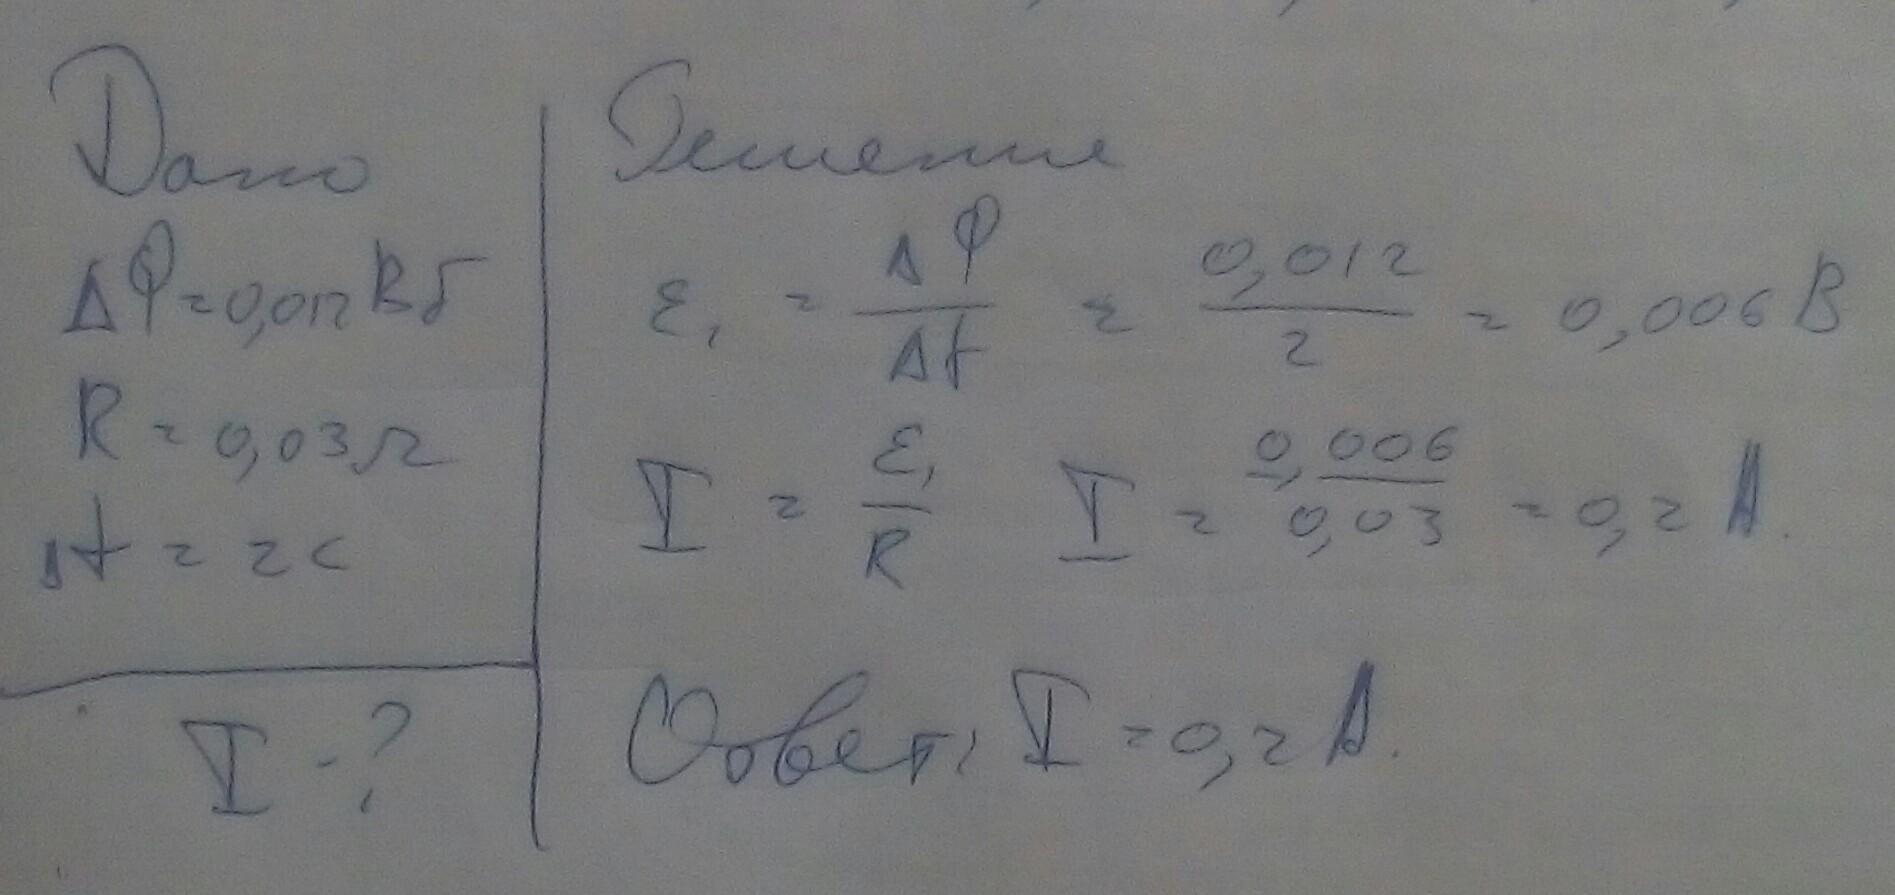 Дано
ΔΦ=0,012Вб
R=0,03Ω
Δt=2с
I-?
Решение
εi = ΔΦ/Δt = 0,012/2 = 0,006В
I = εi/R I = 0,006/0,03 = 0,2А.
Ответ: I=0,2А.